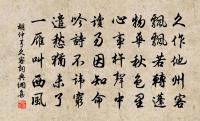 久作他州客
飄飄若轉蓬
物華秋色里
心事杵聲中
讀易因知命
吟詩不諱窮
遣愁猶未了
一雁叫西風
胡仲弓久客詞典網